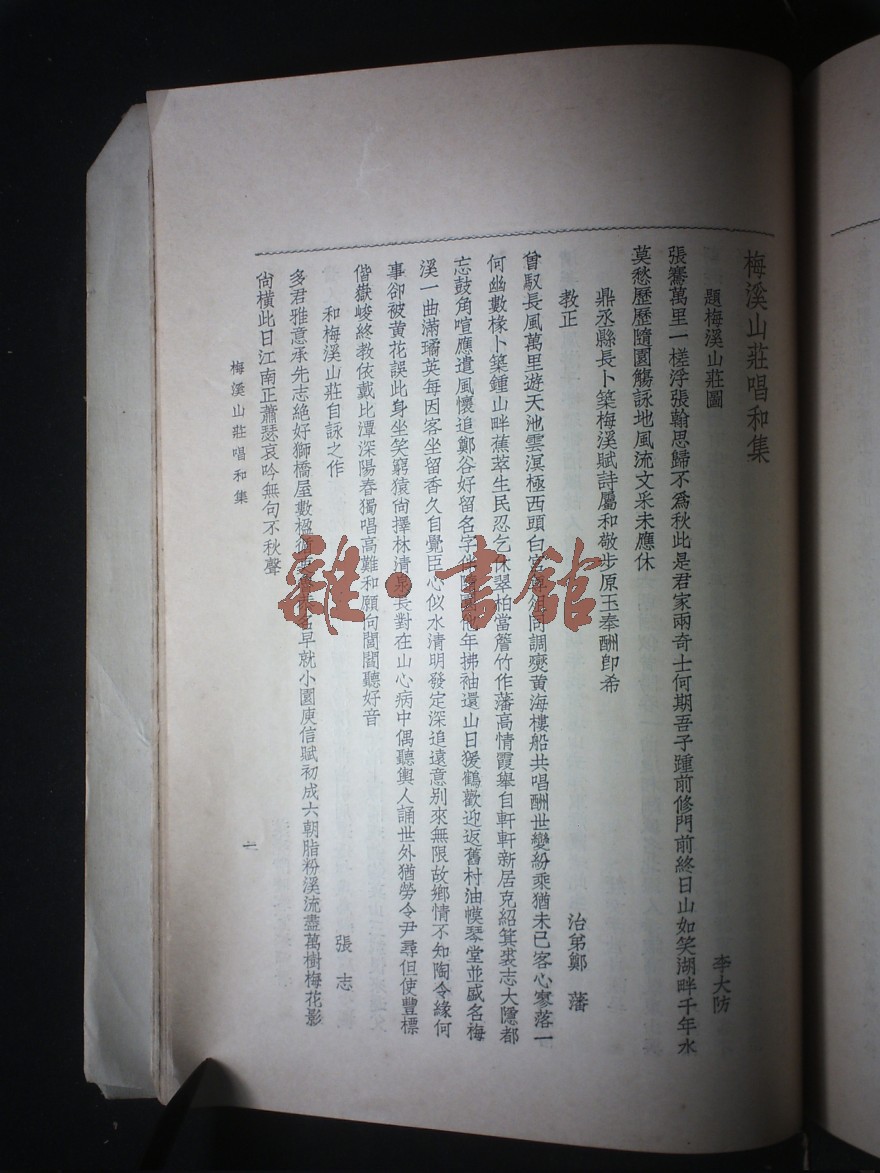 梅溪山莊唱和集
題梅溪山莊圖
李大防
張騫萬里一槎浮張翰思歸不為秋此是君家兩奇士何期吾子踵前修門前終日山如笑湖畔千年水
莫愁歷歷隨園觴詠地風流文采未應休
鼎丞縣長卜築梅溪賦詩屬和敬步原玉奉酬即希
教正
治弟鄭藩
曾馭長風萬里遊天池雲溟極西頭白宮
同調奭黃海樓船共唱酬世變紛乘猶未已客心寥落一
何幽數椽卜築鍾山畔蕉萃生民忍乞休翠柏當簷竹作藩高情霞舉自軒軒新居克紹箕裘志大隱都
忘鼓角喧應遣風懷追鄭谷好留名字伴
年拂袖還山日猨鶴歡迎返舊村油幙琴堂並盛名梅
溪一曲滿璚英每因客坐留香久自覺臣心似水清明發定深追遠意別來無限故鄉情不知陶令緣何
事卻被黃花誤此身坐笑窮猿尙擇林清泉長對在山心病中偶聽輿人誦世外猶勞令尹尋但使豐標
偕嶽峻終教依戴比潭深陽春獨唱高難和願向閶闔聽好音
和梅溪山莊自詠之作
張志
多君雅意承先志絶好獅橋屋數楹
名早就小園庾信賦初成六朝脂粉溪流盡萬樹梅花影
尙橫此日江南正蕭瑟哀吟無句不秋聲
梅溪山莊唱和集
一
雜·書館